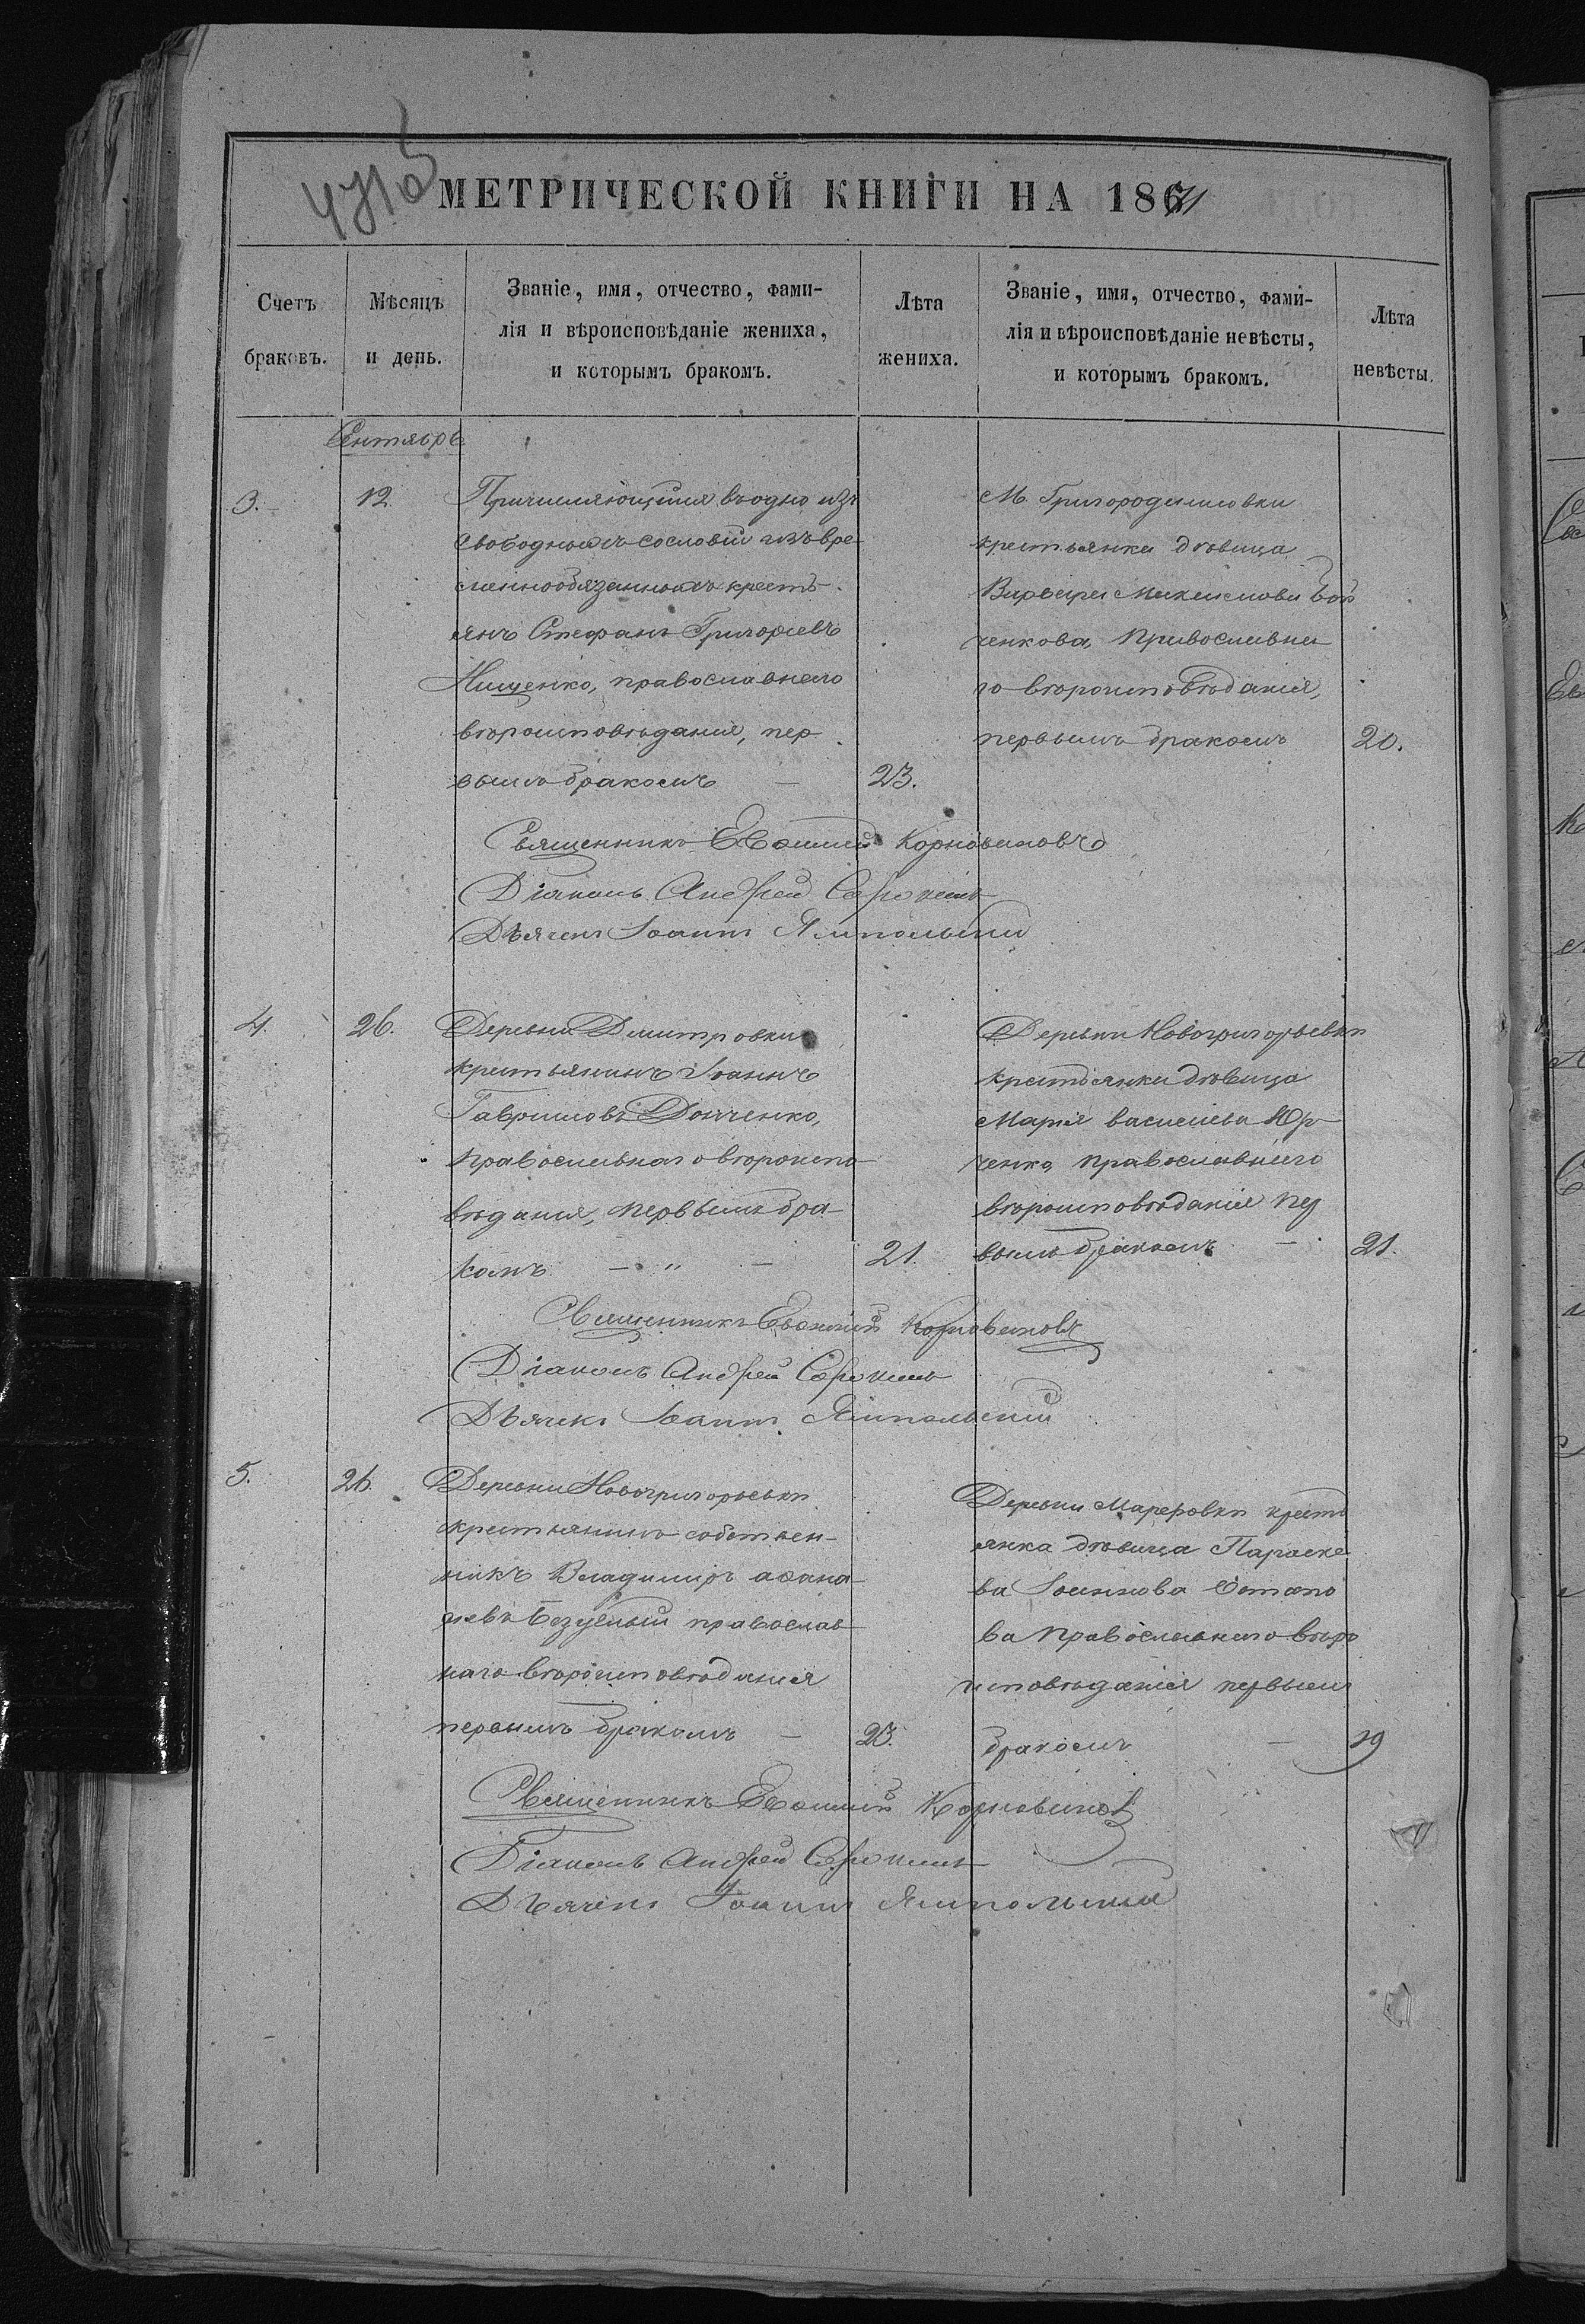 МЕТРИЧЕСКОЙ КНИГИ НА 1871
Счетъ браковъ.
Мѣсяцъ и день.
Званіе, имя, отчество, фами-
лія и вѣроисповѣданіе жениха,
и которымъ бракомъ.
Лѣта жениха.
Званіе, имя, отчество, фами-
лія и вѣроисповѣданіе невѣсты,
и которымъ бракомъ.
Лѣта невѣсты.
Сентябрь
3.
12.
Причисляющійся въ одно изъ
свободныхъ сословій изъ вре
меннообязанныхъ кресть-
янъ Стефанъ Григорьевъ
Нищенко, православнаго
вѣроисповѣданія, пер
вымъ бракомъ —
23.
М. Григороденисовки
крестьянка дѣвица
Варвара Максимова
ченкова, православна
го вѣроисповѣданія,
первымъ бракомъ
20.
Священникъ Евѳимій Корновановъ
Діаконъ Андрей Сорокинъ
Дьячекъ Іоаннъ Ямпольскій
4.
26.
Деревни Димитровки
крестьянинъ Іоаннъ
Гавриловъ Донченко,
православнаго вѣроиспо
вѣданія, первымъ бра-
комъ — " —
21.
Деревни Новогригорьевки
крестьянка дѣвица
Марія Василіева Юр
ченко, православнаго
вѣроисповѣданія пер
вымъ бракомъ —
21.
Священникъ Евѳимій Корновановъ
Діаконъ Андрей Сорокинъ
Дьячекъ Іоаннъ Ямпольскій
5.
26.
Деревни Новогригорьевки
крестьянинъ собствен-
никъ Владимиръ Аѳана
сіевъ Безуглый православ
наго вѣроисповѣданія
первымъ бракомъ —
23.
Деревни Марфовки кресть
янка дѣвица Параске
ва Іоаннова
ва православнаго вѣро
исповѣданія первымъ
бракомъ —
19
Священникъ Евѳимій Корновановъ
Діаконъ Андрей Сорокинъ
Дьячекъ Іоаннъ Ямпольскій